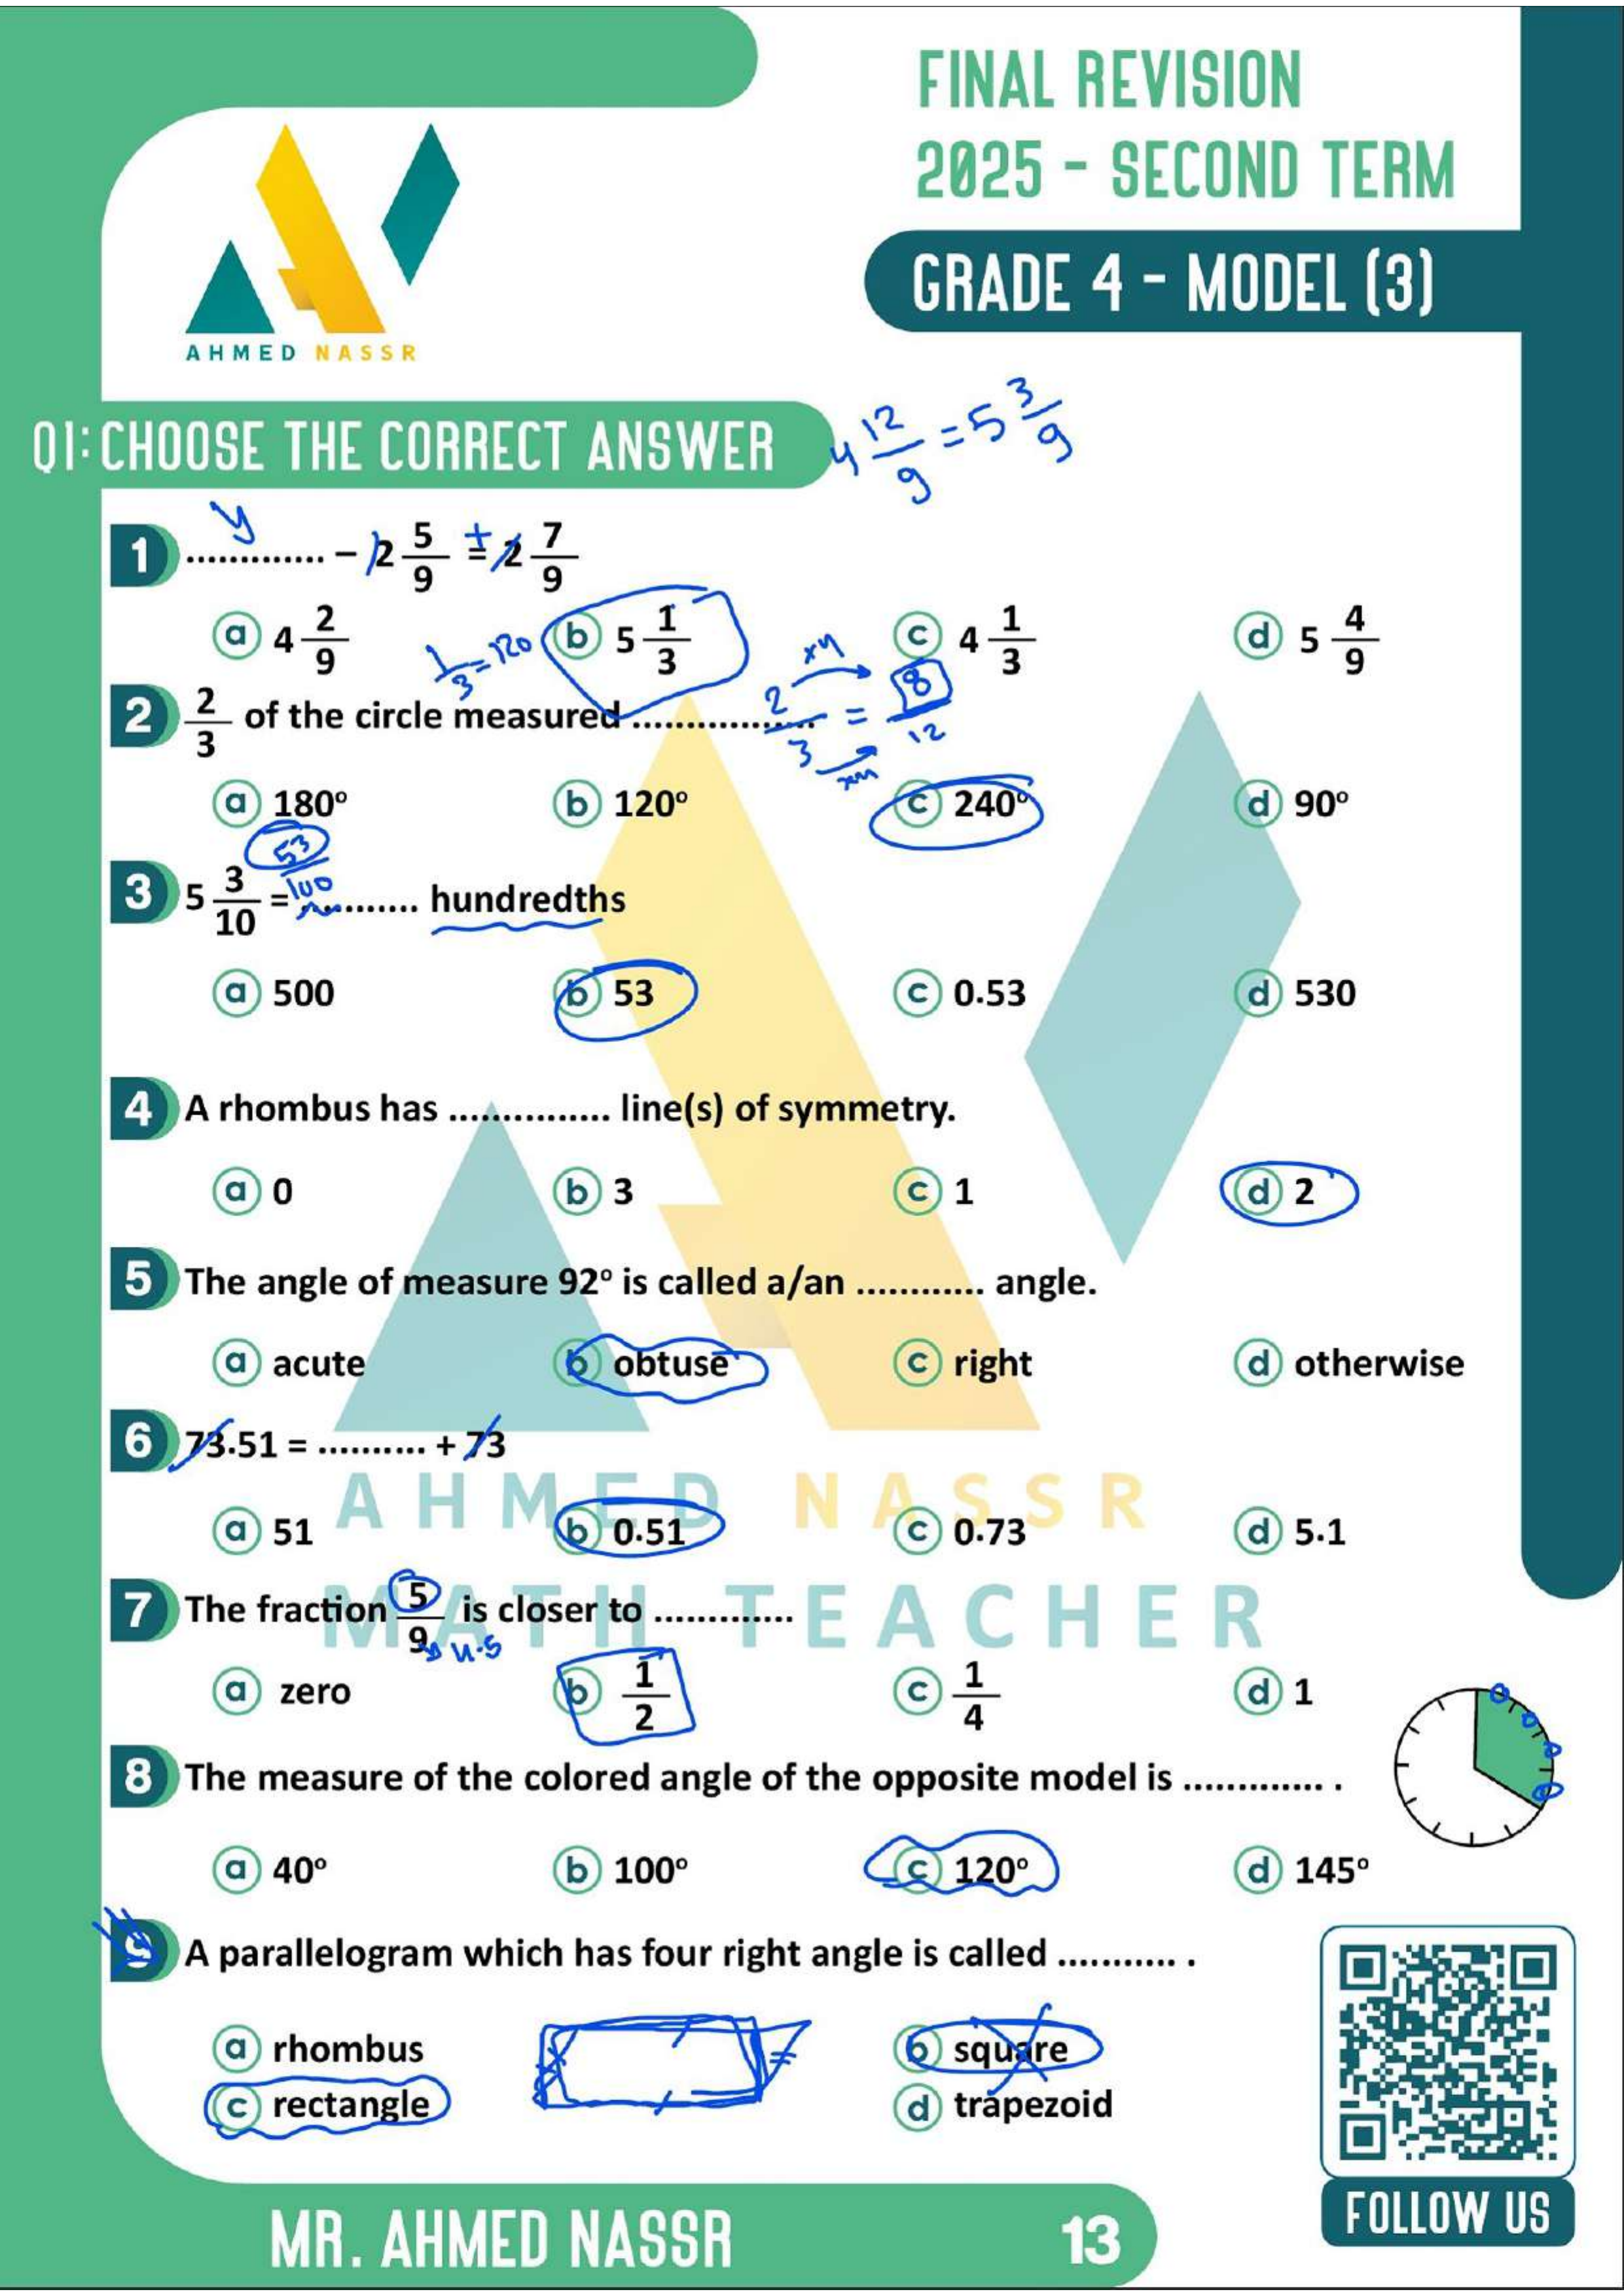 FINAL REVISION
2025 - SECOND TERM
GRADE 4 - MODEL (3)
AHMED NASSR
Q1: CHOOSE THE CORRECT ANSWER
4 12/9 = 5 3/9
y
1 ............. − 2 5/9 = 2 7/9
+
a 4 2/9 b 5 1/3 c 4 1/3 d 5 4/9
1/3 = 120
2 2/3 of the circle measured ..................
2/3 = 8/12
x4
a 180° b 120° c 240° d 90°
53/100
3 5 3/10 = ........... hundredths
a 500 b 53 c 0.53 d 530
4 A rhombus has ............... line(s) of symmetry.
a 0 b 3 c 1 d 2
5 The angle of measure 92° is called a/an ............ angle.
a acute b obtuse c right d otherwise
6 73.51 = .......... + 73
AHMED NASSR
a 51 b 0.51 c 0.73 d 5.1
MATH TEACHER
7 The fraction 5/9 is closer to .............
4.5
a zero b 1/2 c 1/4 d 1
8 The measure of the colored angle of the opposite model is ............. .
a 40° b 100° c 120° d 145°
9 A parallelogram which has four right angle is called ........... .
a rhombus b square
c rectangle d trapezoid
MR. AHMED NASSR
13
FOLLOW US